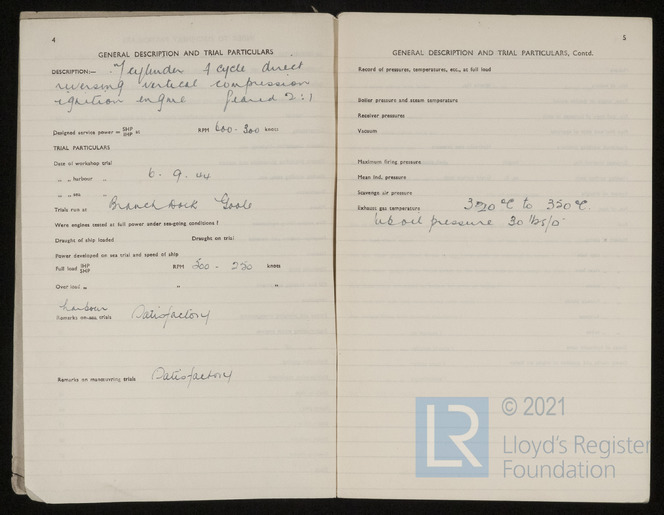 4
GENERAL DESCRIPTION AND TRIAL PARTICULARS
DESCRIPTION:— 7 cylinder 4 cycle direct
reversing vertical compression
ignition engine geared 2:1
Designed service power = SHP IHP at RPM 600 - 300 knots
TRIAL PARTICULARS
Date of workshop trial
„ „ harbour „ 6. 9. 44
„ „ sea „
Trials run at Branch Dock Goole
Were engines tested at full power under sea-going conditions?
Draught of ship loaded Draught on trial
Power developed on sea trial and speed of ship
Full load IHP SHP RPM 500 - 250 knots
Over load „ „ „
harbour
Remarks on sea trials Satisfactory
Remarks on manœuvring trials Satisfactory
5
GENERAL DESCRIPTION AND TRIAL PARTICULARS, Contd.
Record of pressures, temperatures, etc., at full load
Boiler pressure and steam temperature
Receiver pressures
Vacuum
Maximum firing pressure
Mean ind. pressure
Scavenge air pressure
Exhaust gas temperature 320 °C to 350 °C.
Lub oil pressure 30 lbs/□"
LR
© 2021
Lloyd's Register
Foundation